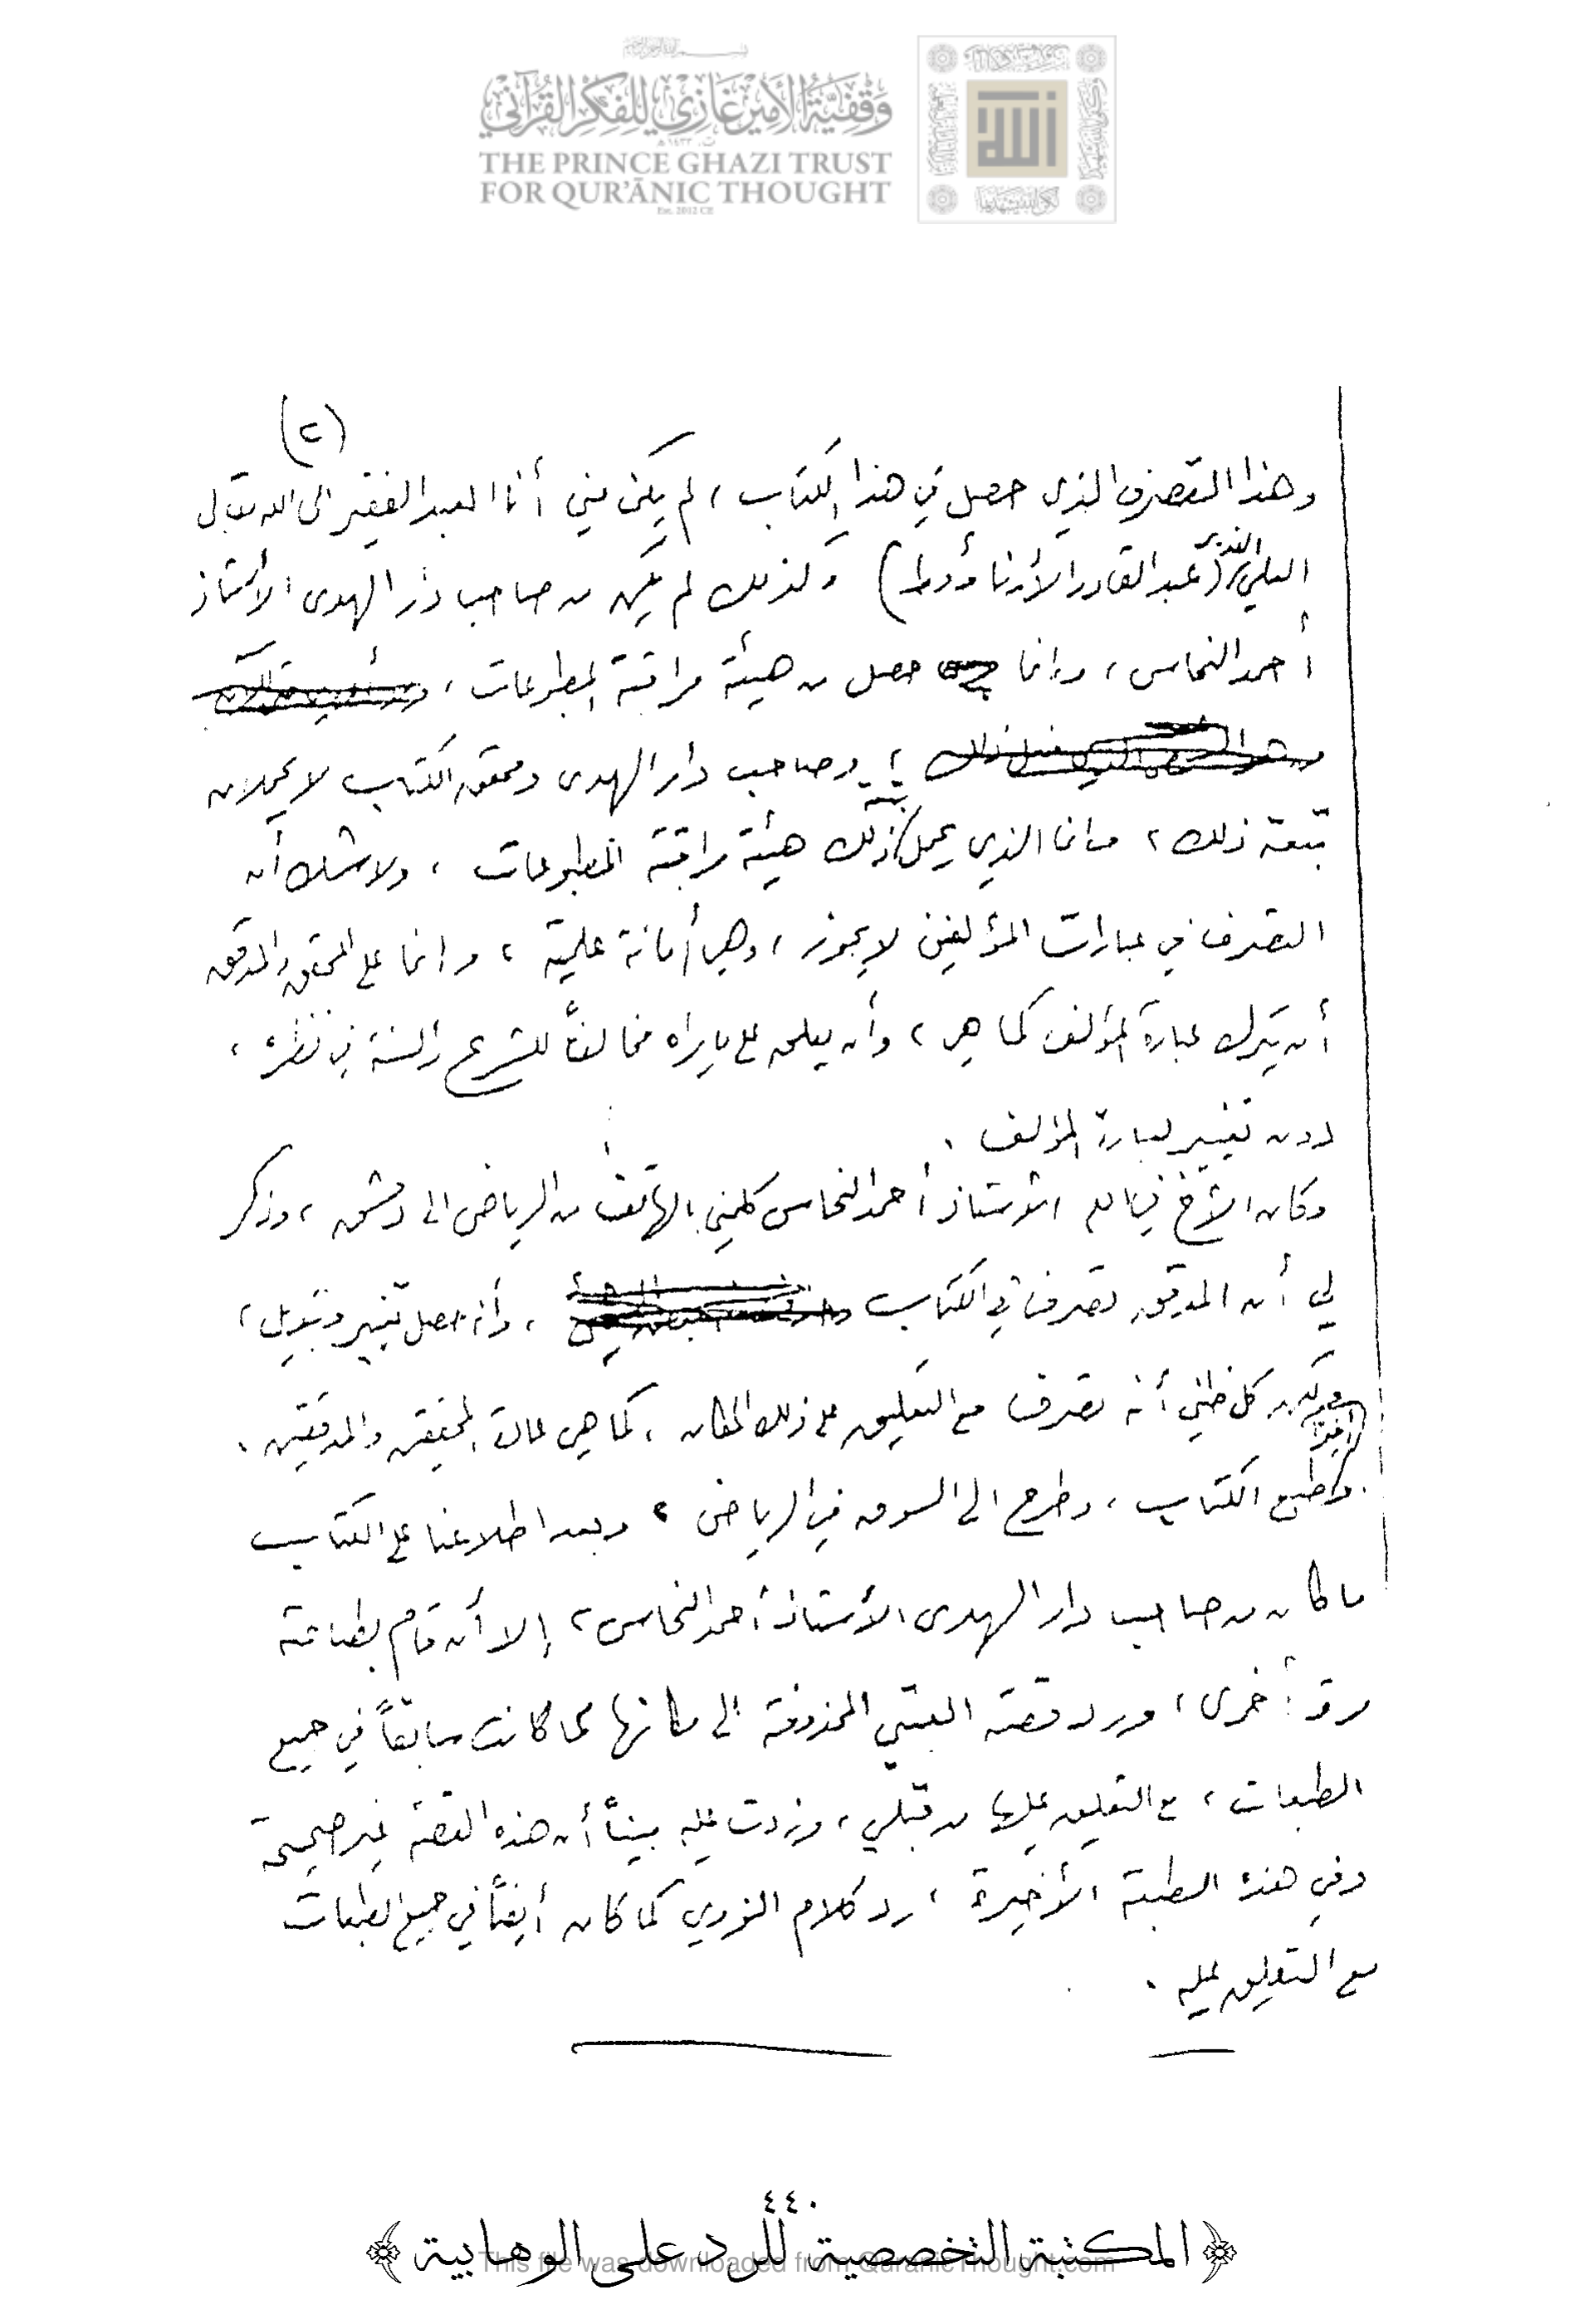 بسم الله الرحمن الرحيم
وَقْفِيَّةُ الأَمِيْرِ غَازِي لِلْفِكْرِ القُرْآنِي
ت. ١٤٣٣هـ
THE PRINCE GHAZI TRUST
FOR QUR'ĀNIC THOUGHT
Est. 2012 CE
الله
(٢)
وهذا التصرف الذي حصل في هذا الكتاب ، لم يكن مني أنا العبد الفقير الى الله تعالى
العلي القدير (عبد القادر الأرناؤوط) وكذلك لم يكن من صاحب دار الهدى الأستاذ
أحمد النحاس ، وانما حصل من هيئة مراقبة المطبوعات ،
؛ وصاحب دار الهدى ومحقق الكتاب لا يحملان
تبعة ذلك ، وانما الذي يحمل تبعة ذلك هيئة مراقبة المطبوعات ، ولا شك أن
التصرف في عبارات المؤلفين لا يجوز ، وهي أمانة علمية ، وانما على المحقق والمدقق
أن يترك عبارة المؤلف كما هي ، وأن يعلق على ما يراه مخالفاً للشرع والسنة في نظره ،
دون تغيير لعبارة المؤلف .
وكان الأخ الأستاذ أحمد النحاس كلمني بالهاتف من الرياض الى دمشق ، وذكر
لي أن المدقق تصرف في الكتاب ، وأنه حصل تغيير وتبديل ،
ولكن كل ظني أنه تصرف مع التعليق على ذلك المكان ، كما هي عادة المحققين والمدققين .
وأخيراً طبع الكتاب ، وطرح الى السوق في الرياض ، وبعد اطلاعنا على الكتاب
ما كان من صاحب دار الهدى الأستاذ أحمد النحاس ، إلا أن قام بطباعته
مرة أخرى ، ورد قصة العتبي المحذوفة الى مكانها كما كانت سابقاً في جميع
الطبعات ، مع التعليق عليها من قبلي ، وزدت عليه مبيناً أن هذه القصة غير صحيحة
وفي هذه الطبعة الأخيرة ، رد كلام النووي كما كان أيضاً في جميع الطبعات
مع التعليق عليه .
٤٤٠
﴿ المكتبة التخصصية للرد على الوهابية ﴾
This file was downloaded from QuranicThought.com